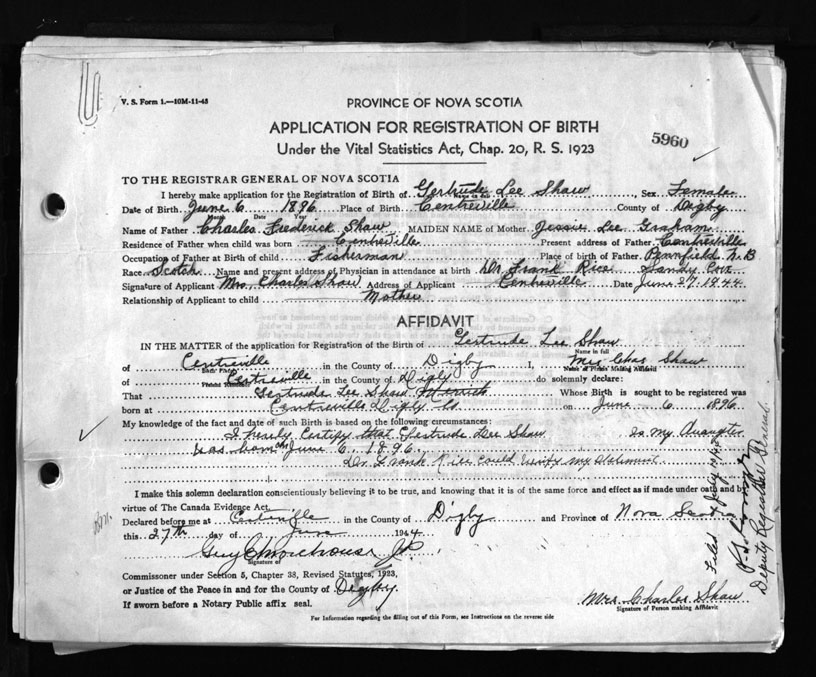 V. S. Form 1.—10M-11-43
PROVINCE OF NOVA SCOTIA
APPLICATION FOR REGISTRATION OF BIRTH
5960
Under the Vital Statistics Act, Chap. 20, R. S. 1923
TO THE REGISTRAR GENERAL OF NOVA SCOTIA
I hereby make application for the Registration of Birth of Gertrude Lee Shaw, Sex Female
Date of Birth June 6 1896 Place of Birth Centreville County of Digby
Month Date Year
Name of Father Charles Frederick Shaw MAIDEN NAME of Mother Jessie Lee Graham
Residence of Father when child was born Centreville Present address of Father Centreville
Occupation of Father at Birth of child Fisherman Place of birth of Father Pennfield N.B
Race Scotch Name and present address of Physician in attendance at birth Dr Frank Rice Sandy Cove
Signature of Applicant Mrs. Charles Shaw Address of Applicant Centreville Date June 27. 1944
Relationship of Applicant to child Mother
AFFIDAVIT
IN THE MATTER of the application for Registration of the Birth of Gertrude Lee Shaw
Name in full
of Centreville in the County of Digby I, Mrs Chas Shaw
Birth Place Name of Person Making Affidavit
of Centreville in the County of Digby do solemnly declare:
Present Residence
That Gertrude Lee Shaw Whose Birth is sought to be registered was
born at Centreville Digby Co on June 6 1896
My knowledge of the fact and date of such Birth is based on the following circumstances:
I hereby Certify that Gertrude Lee Shaw is my daughter
was born on June 6, 1896.
Dr Frank Rice could verify my statement
I make this solemn declaration conscientiously believing it to be true, and knowing that it is of the same force and effect as if made under oath and by
virtue of The Canada Evidence Act.
Declared before me at Centreville in the County of Digby and Province of Nova Scotia
this 27th day of June 1944
Guy C Morehouse J.P.
Signature of
Commissioner under Section 5, Chapter 38, Revised Statutes, 1923,
or Justice of the Peace in and for the County of Digby
If sworn before a Notary Public affix seal.
Mrs Charles Shaw
Signature of Person making Affidavit
For Information regarding the filling out of this Form, see Instructions on the reverse side
Filed July
Deputy Registrar General.